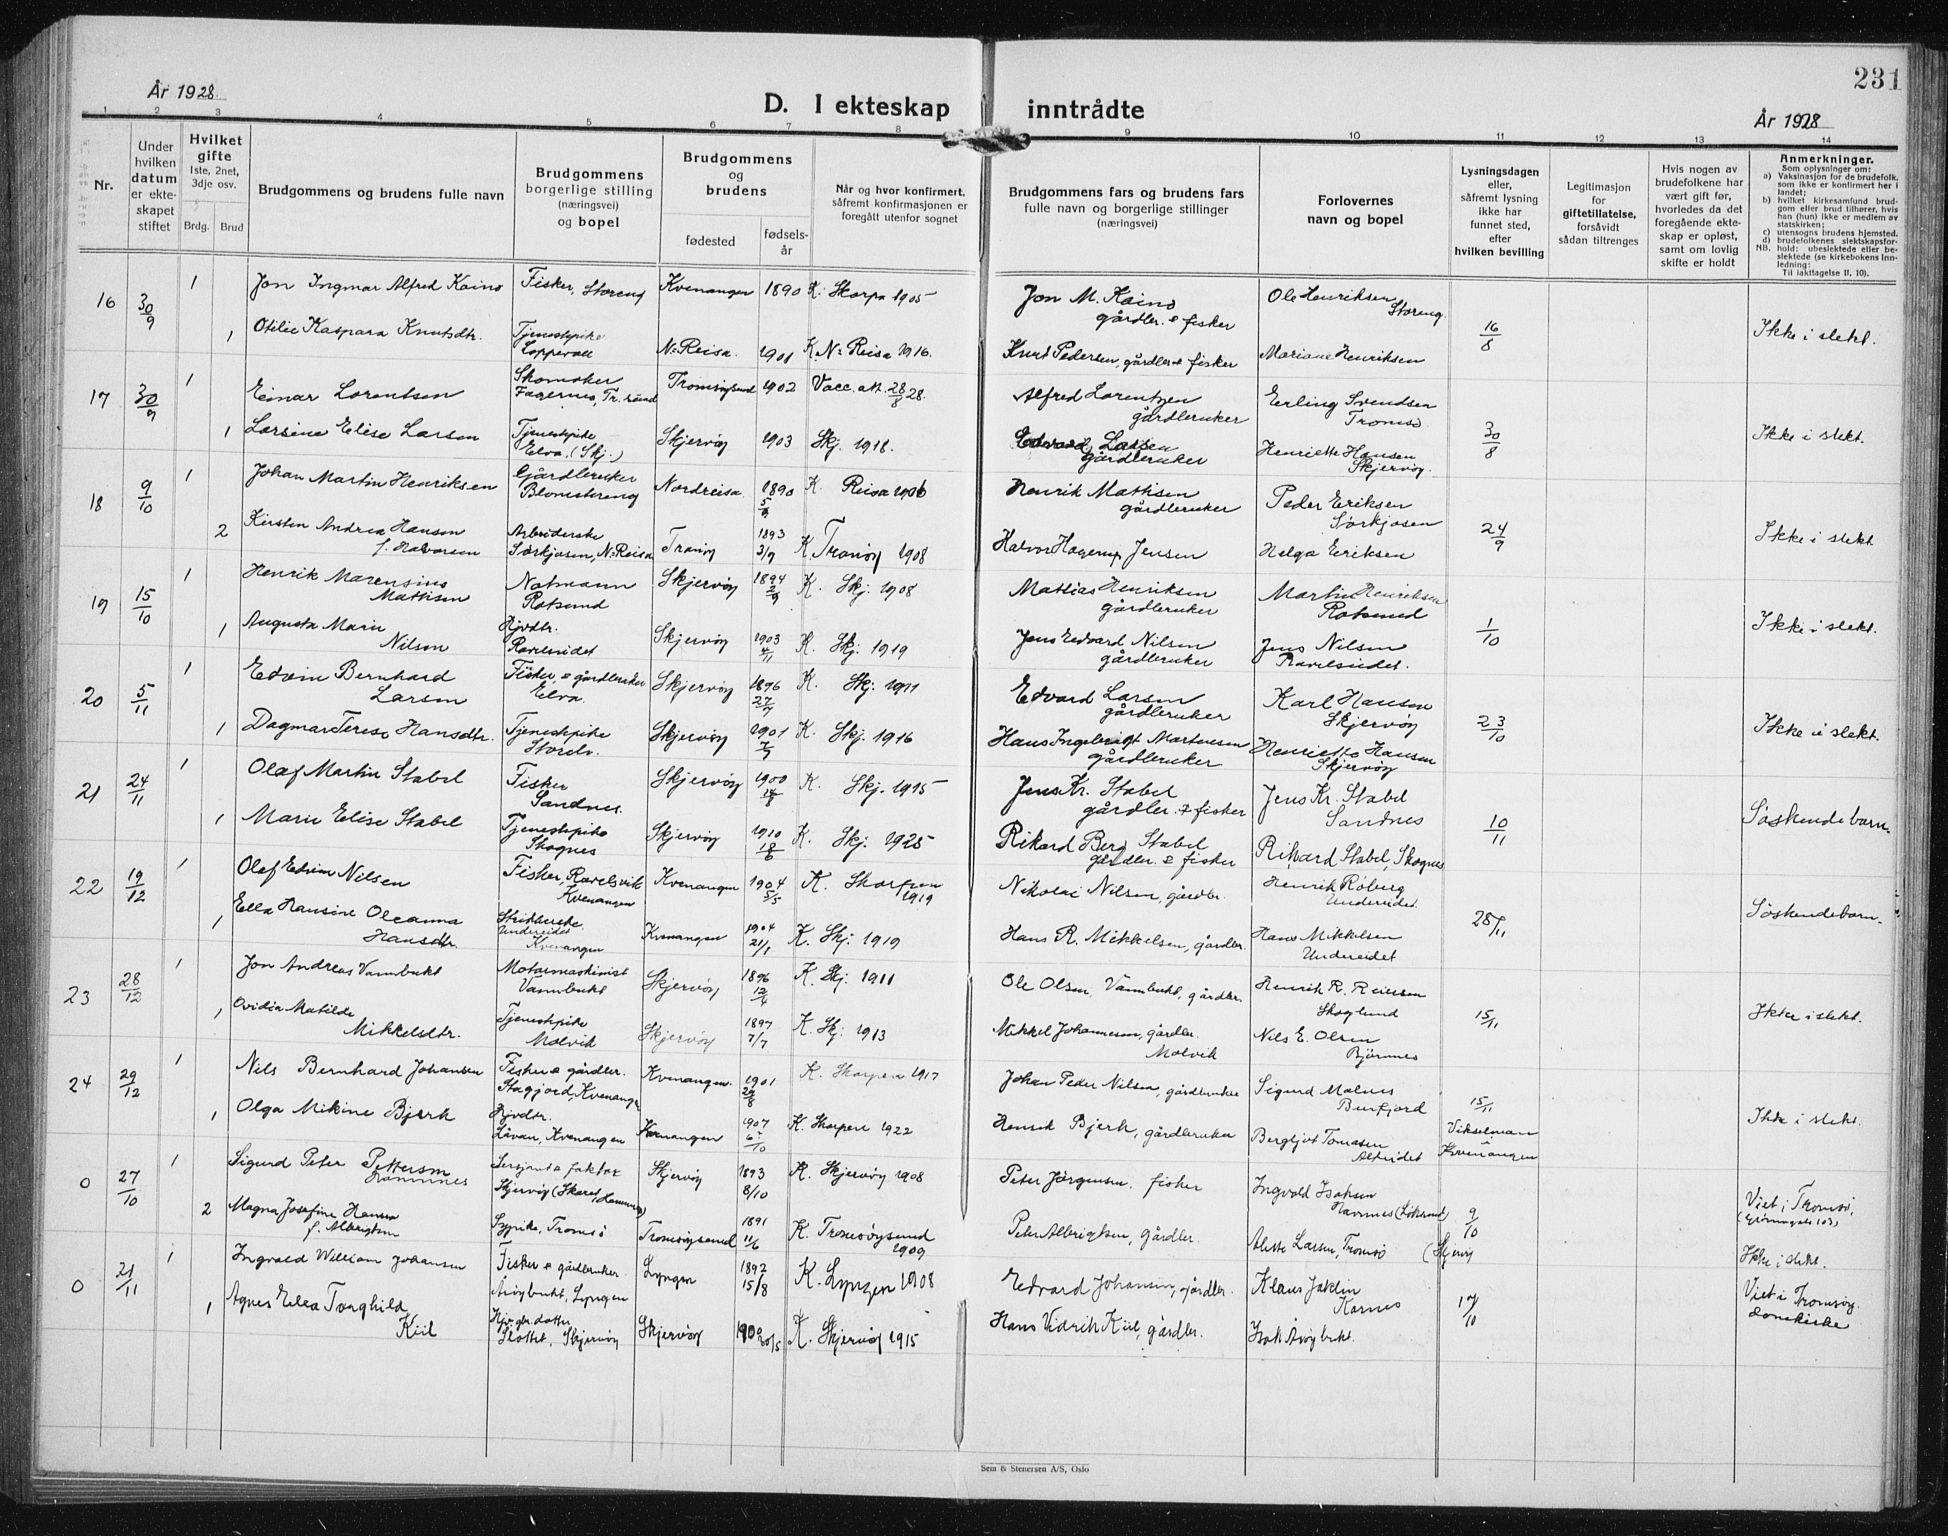 231
År 1928
D. I ekteskap inntrådte
År 1928
1 2 3 4 5 6 7 8 9 10 11 12 13 14
Nr.
Under hvilken datum er ekteskapet stiftet
Hvilket gifte
1ste, 2net, 3dje osv.
Brdg. Brud
Brudgommens og brudens fulle navn
Brudgommens borgerlige stilling (næringsvei) og bopel
Brudgommens og brudens
fødested
fødselsår
Når og hvor konfirmert, såfremt konfirmasjonen er foregått utenfor sognet
Brudgommens fars og brudens fars fulle navn og borgerlige stillinger (næringsvei)
Forlovernes navn og bopel
Lysningsdagen eller, såfremt lysning ikke har funnet sted, efter hvilken bevilling
Legitimasjon for giftetillatelse, forsåvidt sådan tiltrenges
Hvis nogen av brudefolkene har vært gift før, hvorledes da det foregående ekteskap er opløst, samt om lovlig skifte er holdt
Anmerkninger.
Som oplysninger om:
a) Vaksinasjon for de brudefolk, som ikke er konfirmert her i landet;
b) hvilket kirkesamfund brudgom eller brud tilhører, hvis han (hun) ikke er medlem av statskirken;
c) utensogns brudens hjemsted.
d) brudefolkenes slektskapsforhold: ubeslektede eller beslektede (se kirkebokens Innledning:
NB.
Til iakttagelse II, 10).
16 30/9 1 Jon Ingmar Alfred Kaino Fisker, Storeng Kvenangen 1890 K. Skorpa 1905 Jon M. Kaino gårdbr. & fisker Ole Henriksen Storeng 16/8 Ikke i slekt.
1 Otilie Kaspara Knutsdtr. Tjenestepike Loppevoll N-Reisa. 1901 K. N-Reisa 1916. Knut Pedersen, gårdbr. & fisker Mariane Henriksen
17 30/9 1 Einar Lorentsen Skomaker Fagernes, Tr.sund Tromsøysund 1902 Vacc. att. 28/8 28. Alfred Lorentzen gårdbruker Erling Svendsen Tromsø 30/8 Ikke i slekt.
1 Larsine Elise Larsen Tjenestepike Elva. (Skj.) Skjervøy 1903 Skj. 1918. Edvard Larsen gårdbruker Henriette Hansen Skjervøy.
18 9/10 1 Johan Martin Henriksen Gårdbruker Blomstereng Nordreisa 1890 5/9 K. Reisa 1906 Henrik Mattisen gårdbruker Peder Eriksen Sørkjosen 24/9 Ikke i slekt
2 Kirsten Andrea Hansen f. Halvorsen Arbeiderske Sørkjosen, N-Reisa Tranøy 1893 3/9 K Tranøy 1908 Halvor Hagerup Jensen Helga Eriksen
19 15/10 1 Henrik Marensius Mattisen Notmann Rotsund Skjervøy 1894 2/9 K. Skj. 1908 Mattias Henriksen gårdbruker Martin Henriksen Rotsund 1/10 Ikke i slekt.
1 Augusta Marie Nilsen Hjvdtr. Ravelseidet Skjervøy 1903 4/11 K. Skj. 1919 Jens Edvard Nilsen gårdbruker Jens Nilsen Ravelseidet.
20 5/11 1 Edvin Bernhard Larsen Fisker & gårdbruker Elva Skjervøy 1896 27/9 K. Skj. 1911 Edvard Larsen gårdbruker Karl Hansen Skjervøy 23/10 Ikke i slekt.
1 Dagmar Terese Hansdtr. Tjenestepike Storelv. Skjervøy 1901 7/7 K. Skj. 1916 Hans Ingebrigt Martinsen gårdbruker Henriette Hansen Skjervøy
21 24/11 1 Olaf Martin Stabel Fisker Sandnes. Skjervøy 1900 14/8 K. Skj. 1915 Jens Kr. Stabel gårdbr. & fisker Jens Kr. Stabel Sandnes 10/11 Søskendebarn.
1 Marie Elise Stabel Tjenestepike Skognes Skjervøy 1910 18/6 K. Skj. 1925 Rikard Berg Stabel gårdbr. & fisker Rikard Stabel, Skognes
22 19/12 1 Olaf Edvin Nilsen Fisker, Ravelsvik Kvenangen Kvenangen 1904 5/5 K. Skorpen 1919 Nikolai Nilsen, gårdbr. Henrik Roberg Undereidet 28/11 Søskendebarn.
1 Ella Hansine Oleanna Hansdtr. Strikkerske Undereidet Kvenangen Kvenangen 1904 21/1 K. Skj. 1919 Hans R. Mikkelsen, gårdbr. Hans Mikkelsen Undereidet
23 28/12 1 Jon Andreas Vannbukt Motormaskinist Vannbukt Skjervøy 1896 12/4 K Skj 1911 Ole Olsen Vannbukt, gårdbr. Henrik R. Reiersen Skoglund 15/11 Ikke i slekt.
1 Ovidia Matilde Mikkelsdtr. Tjenestepike Molvik Skjervøy 1897 7/7 K Skj. 1913 Mikkel Johannesen, gårdbr. Molvik Nils E. Olsen Bjørnnes
24 29/12 1 Nils Bernhard Johansen Fisker & gårdbr. Kvenangen Kvenangen. 1901 29/8 K. Skorpen 1917 Johan Peder Nilsen, gårdbruker Sigurd Malnes Burfjord 15/11 Ikke i slekt.
1 Olga Mikine Bjerk Hjvdtr. Låvan, Kvenangen Kvenangen 1907 6/10 K. Skorpen 1922 Bjerk, gårdbruker Bergljot Tomasen Alteidet Vikselman i Kvenangen
0 27/10 1 Sigurd Peter Pettersen Sersjant & faktor Skjervøy Skjervøy 1893 8/10 K. Skjervøy 1908 Peter Jørgensen, fisker Ingvald Isaksen 9/10 Viet i Tromsø,
2 Magna Josefine Hansen f. Albrigtsen Sypike, Tromsø Tromsøysund 1891 11/6 K. Tromsøysund 1909 Peter Albrigtsen, gårdbr. Alette Larsen, Tromsø Ikke i slekt.
0 21/11 1 Ingvald William Johansen Fisker & gårdbruker Årøybukt, Lyngen Lyngen 1892 15/8 K. Lyngen 1908 Edvard Johansen, gårdbr. Klaus Jaklin Karnes 17/10 Viet i Tromsøy domkirke
1 Agnes Ella Torghild Kiil Slottet, Skjervøy Skjervøy 1900 20/5 K. Skjervøy 1915 Hans Vidrik Kiil, gårdbr. Isak Årøybukt.
Sem & Stenersen A/S, Oslo